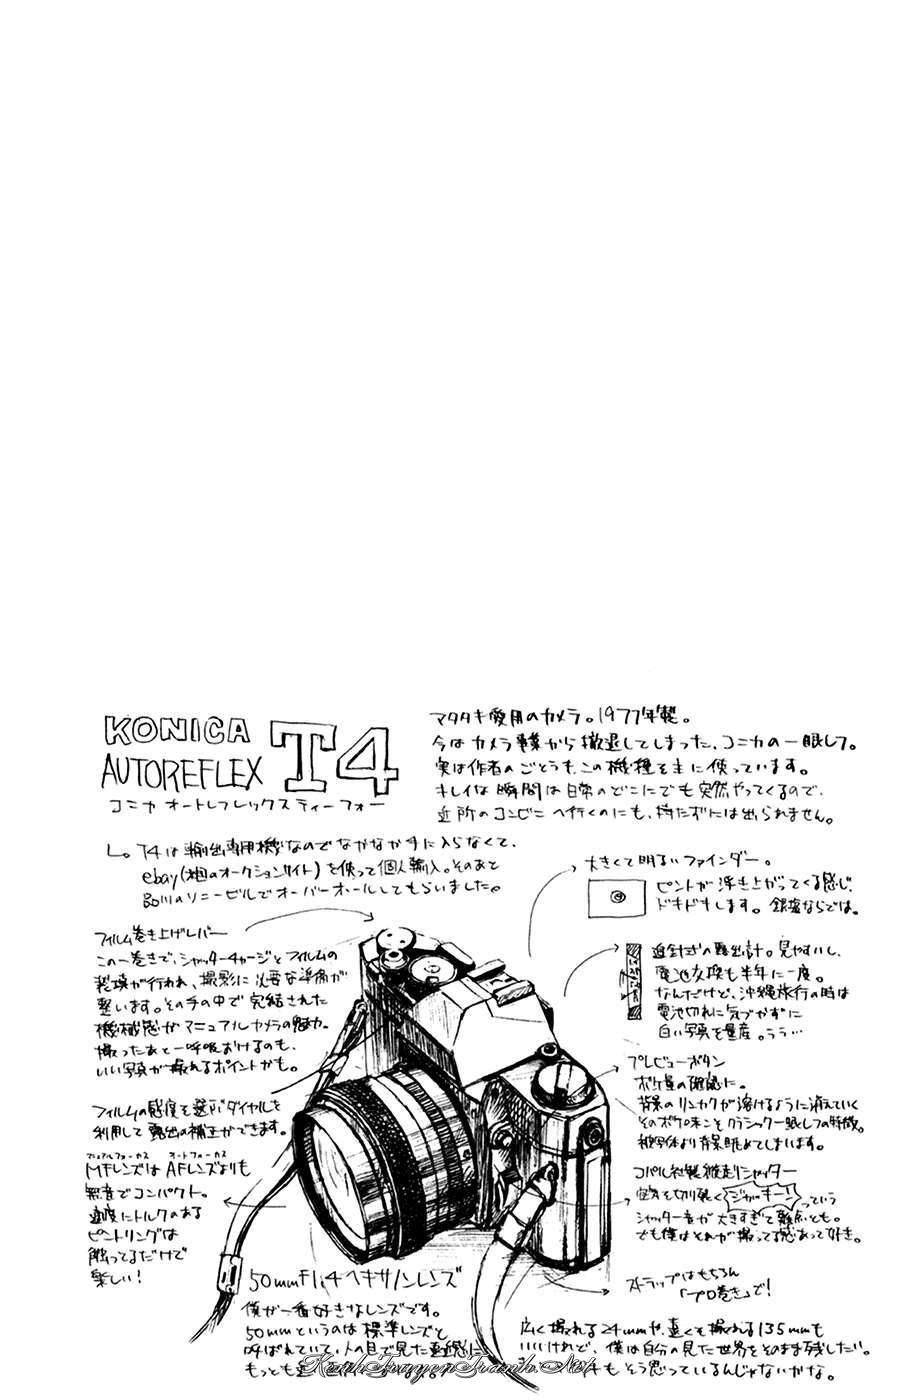 KONICA
AUTOREFLEX T4
コニカ オートレフレックス ティーフォー
マタタキ愛用のカメラ。1977年製。
今はカメラ事業から撤退してしまった、コニカの一眼レフ。
実は作者のごとうも、この機種を主に使っています。
キレイな瞬間は日常のどこにでも突然やってくるので、
近所のコンビニへ行くのにも、持たずには出られません。
T4は輸出専用機なのでなかなか手に入らなくて、
ebay(米国のオークションサイト)を使って個人輸入。そのあと
品川のソニービルでオーバーオールしてもらいました。
大きくて明るいファインダー。
ピントが浮き上がってくる感じ
ドキドキします。銀塩ならでは。
フィルム巻き上げレバー
この一巻きで、シャッターチャージとフィルムの
装填が行われ、撮影に必要な準備が
整います。その手の中で完結された
機械感がマニュアルカメラの魅力。
撮ったあと一呼吸おけるのも、
いい写真が撮れるポイントかも。
追針式の露出計。見やすいし、
電池交換も半年に一度。
なんだけど、沖縄旅行の時は
電池切れに気づかずに
白い写真を量産。うう…
プレビューボタン
ボケ量の確認に。
背景のリンカクが溶けるように消えていく
そのボケ味こそクラシック一眼レフの特徴。
被写体より背景眺めてしまいます。
フィルムの感度を選ぶダイヤルを
利用して露出の補正ができます。
マニュアルフォーカス オートフォーカス
MFレンズは AFレンズよりも
無音でコンパクト。
適度にトルクのある
ピントリングは
触ってるだけで
楽しい!
コパル社製縦走りシャッター
空気を切り裂く ジャッキーン っていう
シャッター音が大きすぎて難点とも。
でも僕はそれが撮ってる感あって好き。
ストラップはもちろん
「プロ巻き」で!
50mm F1.4 ヘキサノンレンズ
僕が一番好きなレンズです。
50mmというのは標準レンズと
呼ばれていて、人の目で見た
もっとも
広く撮れる24mmや、遠くを撮れる135mmも
いいけれど、僕は自分の見た世界をそのまま残したい。
もそう思っているんじゃないかな。
KenhTruyenTranh.Net